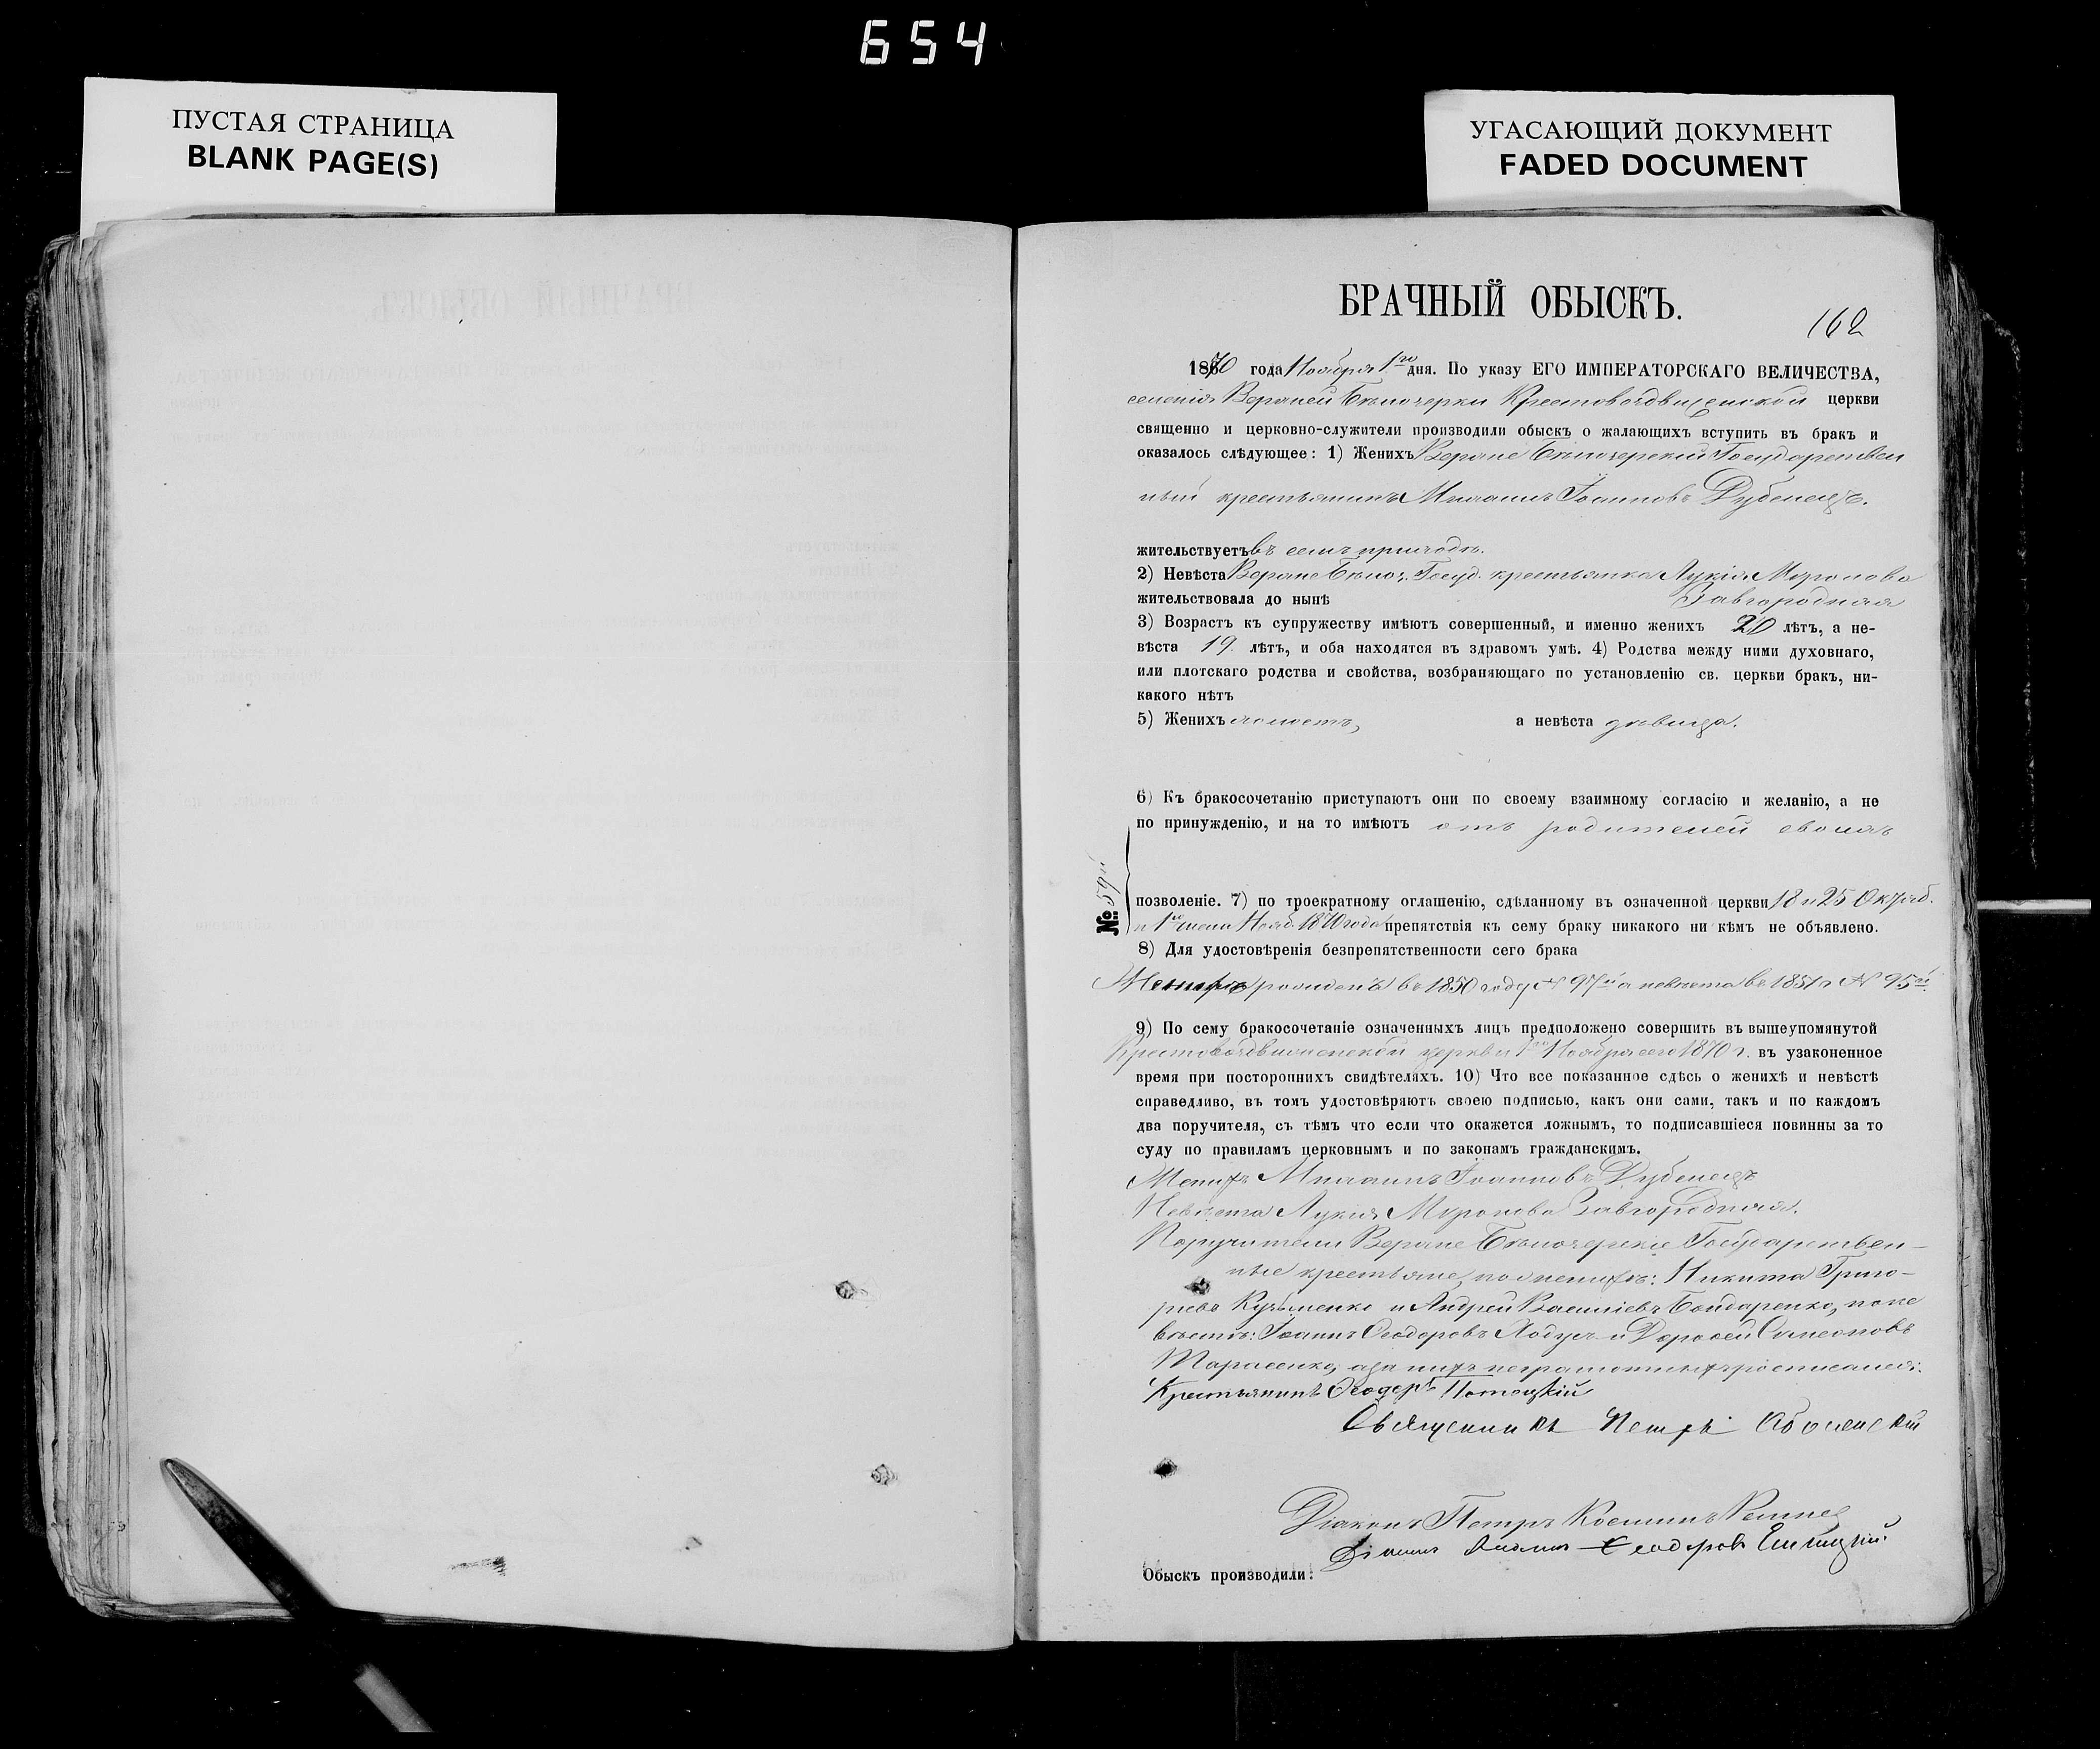 654
ПУСТАЯ СТРАНИЦА
BLANK PAGE(S)
УГАСАЮЩИЙ ДОКУМЕНТ
FADED DOCUMENT
БРАЧНЫЙ ОБЫСКЪ.
162
1870 года Ноября 1го дня. По указу ЕГО ИМПЕРАТОРСКАГО ВЕЛИЧЕСТВА,
селенія Верхней Бѣлозерки Крестовоздвиженской церкви
священно и церковно-служители производили обыскъ о жалающихъ вступить въ бракъ и
оказалось слѣдующее: 1) Женихъ Верхне Бѣлозерскій Государствен
ный крестьянинъ Михаилъ Іоанновъ Дубенецъ.
жительствуетъ въ семъ приходѣ.
2) Невѣста Верхне Бѣлоз. Госуд. крестьянка Лукія Миронова
жительствовала до нынѣ Завгородная
3) Возрастъ къ супружеству имѣютъ совершенный, и именно женихъ 20 лѣтъ, а не-
вѣста 19. лѣтъ, и оба находятся въ здравомъ умѣ. 4) Родства между ними духовнаго,
или плотскаго родства и свойства, возбраняющаго по установленію св. церкви бракъ, ни-
какого нѣтъ
5) Женихъ холостъ, а невѣста дѣвица.
6) Къ бракосочетанію приступаютъ они по своему взаимному согласію и желанію, а не
по принужденію, и на то имѣютъ отъ родителей своихъ
№ 59й
позволеніе. 7) по троекратному оглашенію, сдѣланному въ означенной церкви 18 и 25 Октяб.
и 1го числ Нояб. 1870 года препятствія къ сему браку никакого ни кѣмъ не объявлено.
8) Для удостовѣренія безпрепятственности сего брака
Женихъ рожденъ въ 1850 году № 97й а невѣста въ 1851 г. № 95й.
9) По сему бракосочетаніе означенныхъ лицъ предположено совершить въ вышеупомянутой
Крестовоздвиженской церкви 1го Ноября сего 1870 г. въ узаконенное
время при постороннихъ свидѣтеляхъ. 10) Что все показанное сдѣсь о женихѣ и невѣстѣ
справедливо, въ томъ удостовѣряютъ своею подписью, какъ они сами, такъ и по каждомъ
два поручителя, съ тѣмъ что если что окажется ложнымъ, то подписавшіеся повинны за то
суду по правиламъ церковнымъ и по законамъ гражданскимъ.
Женихъ Михаилъ Іоанновъ Дубенецъ
Невѣста Лукія Миронова Завгородная.
Поручители Верхне Бѣлозерскіе Государствен-
ные крестьяне, по женихѣ: Никита Григо-
рьевъ Кузьменко и Андрей Василіевъ Бондаренко, по не
вѣстѣ: Іоаннъ Ѳеодоровъ Ходусъ и Дороѳей Симеоновъ
Тарасенко, а за нихъ неграмотныхъ росписался:
Крестьянинъ Ѳеодоръ
Священникъ Петръ
Діаконъ Петръ Косминъ
Ѳеодоровъ
Обыскъ производили: